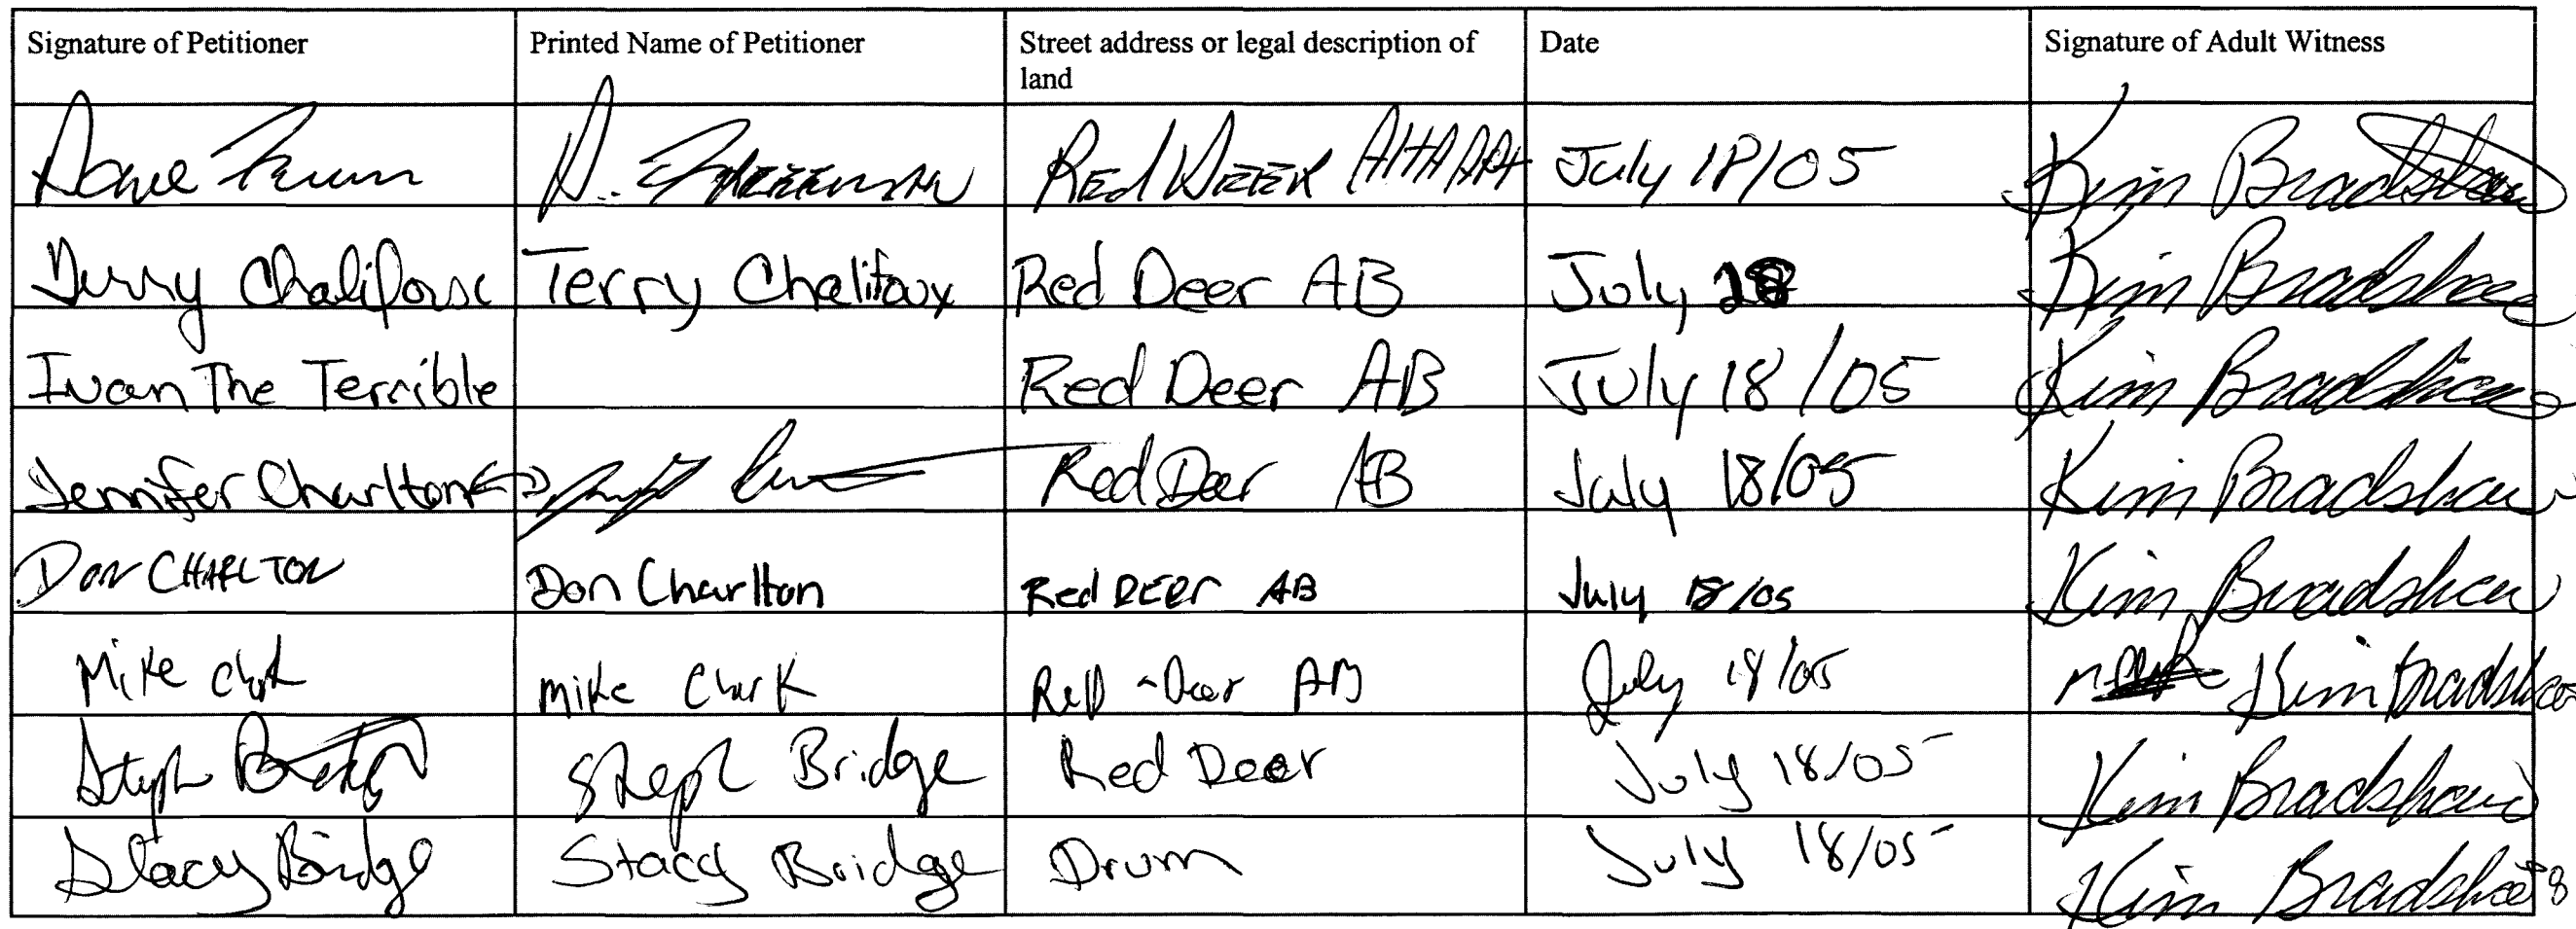 Signature of Petitioner Printed Name of Petitioner Street address or legal description of land Date Signature of Adult Witness
Dave D. Red Deer July 18/05 Kim Bradshaw
Terry Chalifoux Terry Chalifoux Red Deer AB July 18 Kim Bradshaw
Ivan The Terrible Red Deer AB July 18/05 Kim Bradshaw
Jennifer Charlton Red Deer AB July 18/05 Kim Bradshaw
Don CHARLTON Don Charlton Red DEER AB July 18/05 Kim Bradshaw
Mike Clark Mike Clark Red Deer AB July 18/05 Kim Bradshaw
Steph Bridge Steph Bridge Red Deer July 18/05 Kim Bradshaw
Stacy Bridge Stacy Bridge Drum July 18/05 Kim Bradshaw
8